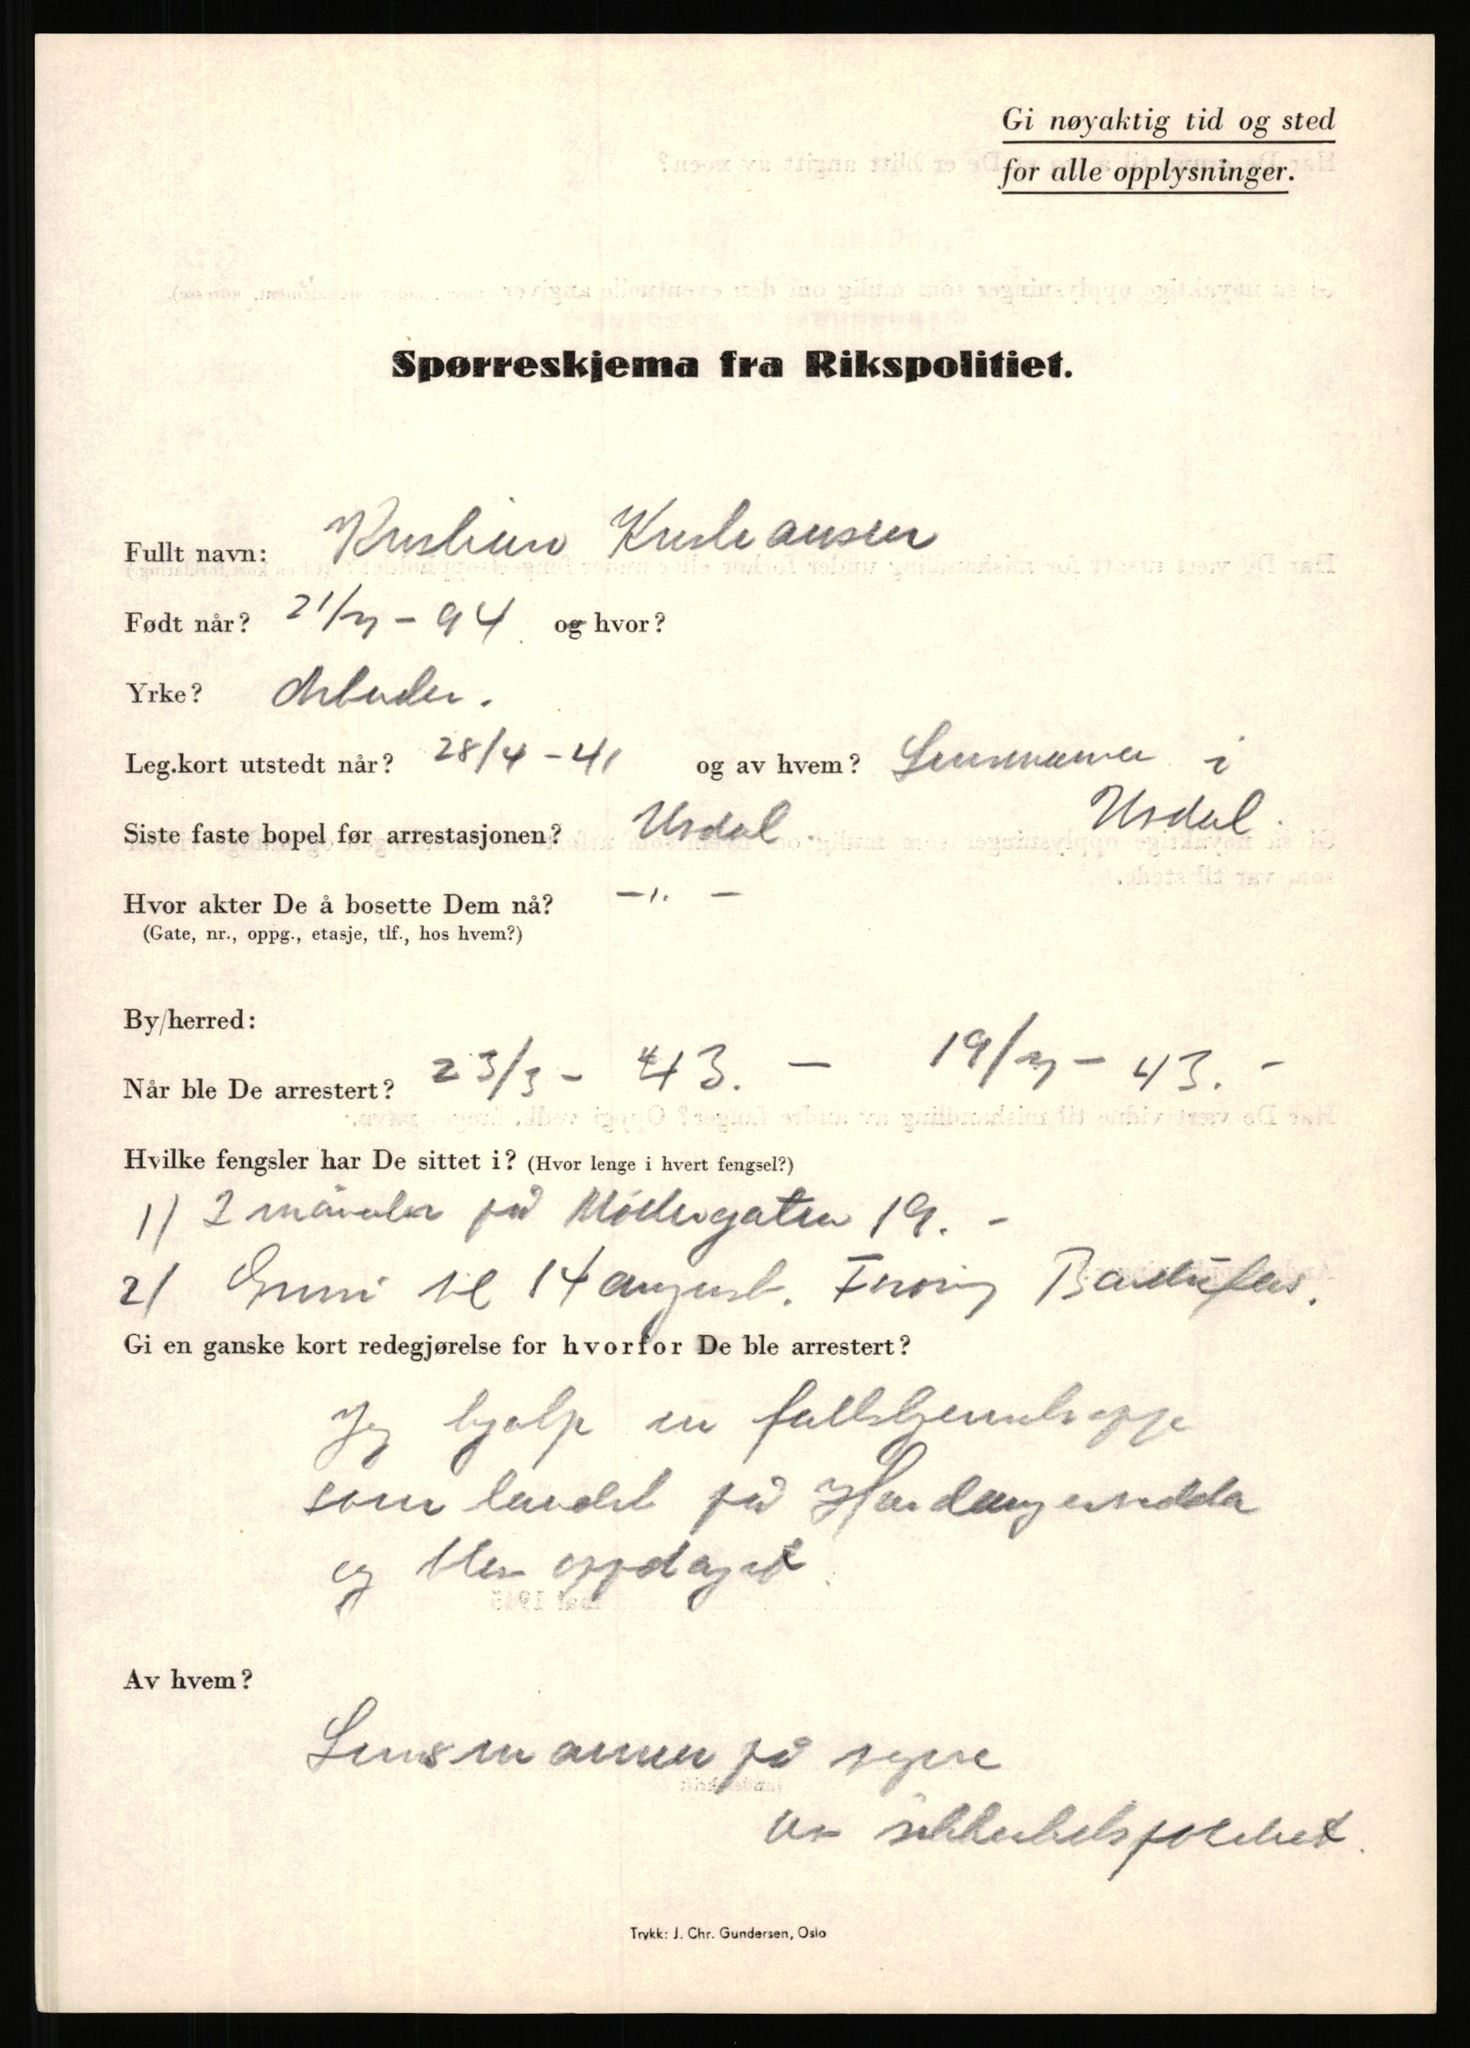 Gi nøyaktig tid og sted
for alle opplysninger.
Spørreskjema fra Rikspolitiet.
Fullt navn: Kristian Kristiansen
Født når? 21/7 - 94 og hvor?
Yrke? Arbeider.
Leg.kort utstedt når? 28/4 - 41 og av hvem? Lensmannen i
Siste faste bopel før arrestasjonen? Uvdal. Uvdal.
Hvor akter De å bosette Dem nå? - " -
(Gate, nr., oppg., etasje, tlf., hos hvem?)
By/herred:
Når ble De arrestert? 23/3 - 43. - 19/ - 43. -
Hvilke fengsler har De sittet i? (Hvor lenge i hvert fengsel?)
1) 2 måneder på Møllergaten 19. -
2) Grini til 14 august. Bardufos.
Gi en ganske kort redegjørelse for hvorfor De ble arrestert?
Jeg hjalp en
som landet på Hardangervidda
og blev oppdaget.
Av hvem?
Lensmannen på
av sikkerhetspolitiet.
Trykk: J. Chr. Gundersen, Oslo